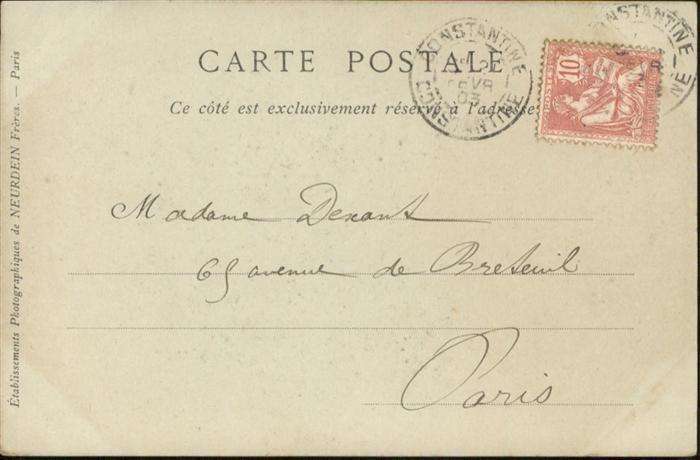 CARTE POSTALE
Ce côté est exclusivement réservé à l'adresse
CONSTANTINE
CONSTANTINE
CONSTANTINE
10
Madame
avenue de Breteuil
Paris
Établissements Photographiques de NEURDEIN Frères. — Paris